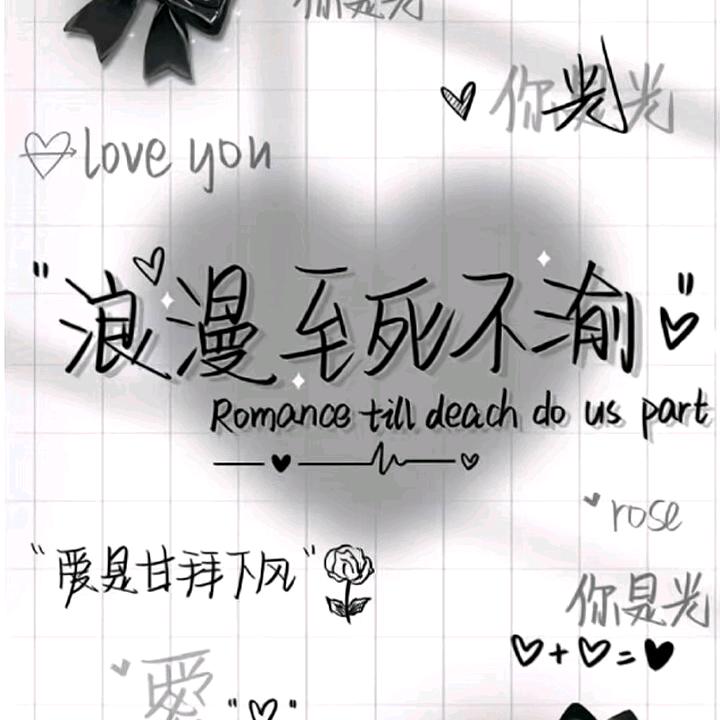 你是光
你是光
光
love you
"浪漫至死不渝"
Romance till deach do us part
rose
"爱是甘拜下风"
你是光
+ =
愛
" "